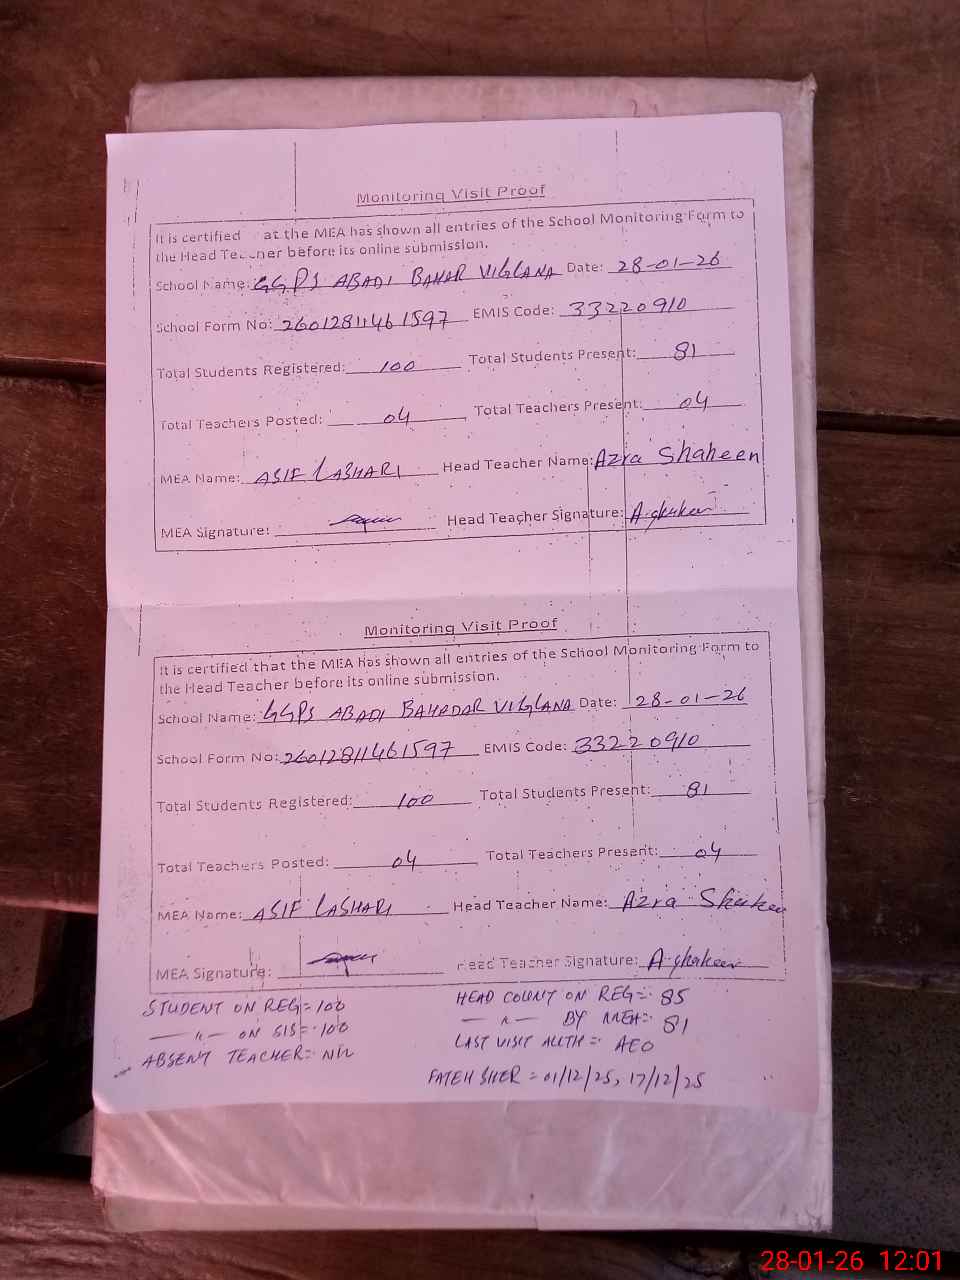 Monitoring Visit Proof
It is certified at the MEA has shown all entries of the School Monitoring Form to
the Head Teacher before its online submission.
School Name: GGPS ABADI BAHAR VIGLANA Date: 28-01-26
School Form No: 26012811461597 EMIS Code: 33220910
Total Students Registered: 100 Total Students Present: 81
Total Teachers Posted: 04 Total Teachers Present: 04
MEA Name: ASIF LASHARI Head Teacher Name: Azra Shaheen
MEA Signature: Head Teacher Signature: A.shaheen
Monitoring Visit Proof
It is certified that the MEA has shown all entries of the School Monitoring Form to
the Head Teacher before its online submission.
School Name: GGPS ABADI BAHADAR VIGLANA Date: 28-01-26
School Form No: 26012811461597 EMIS Code: 33220910
Total Students Registered: 100 Total Students Present: 81
Total Teachers Posted: 04 Total Teachers Present: 04
MEA Name: ASIF LASHARI Head Teacher Name: Azra Shaheen
MEA Signature: Head Teacher Signature: A.shaheen
STUDENT ON REG = 100 HEAD COUNT ON REG = 85
—〃— ON SIS = 100 —〃— BY MEA = 81
ABSENT TEACHER = NIL LAST VISIT AUTH = AEO
FATEH SHER = 01/12/25, 17/12/25
28-01-26 12:01